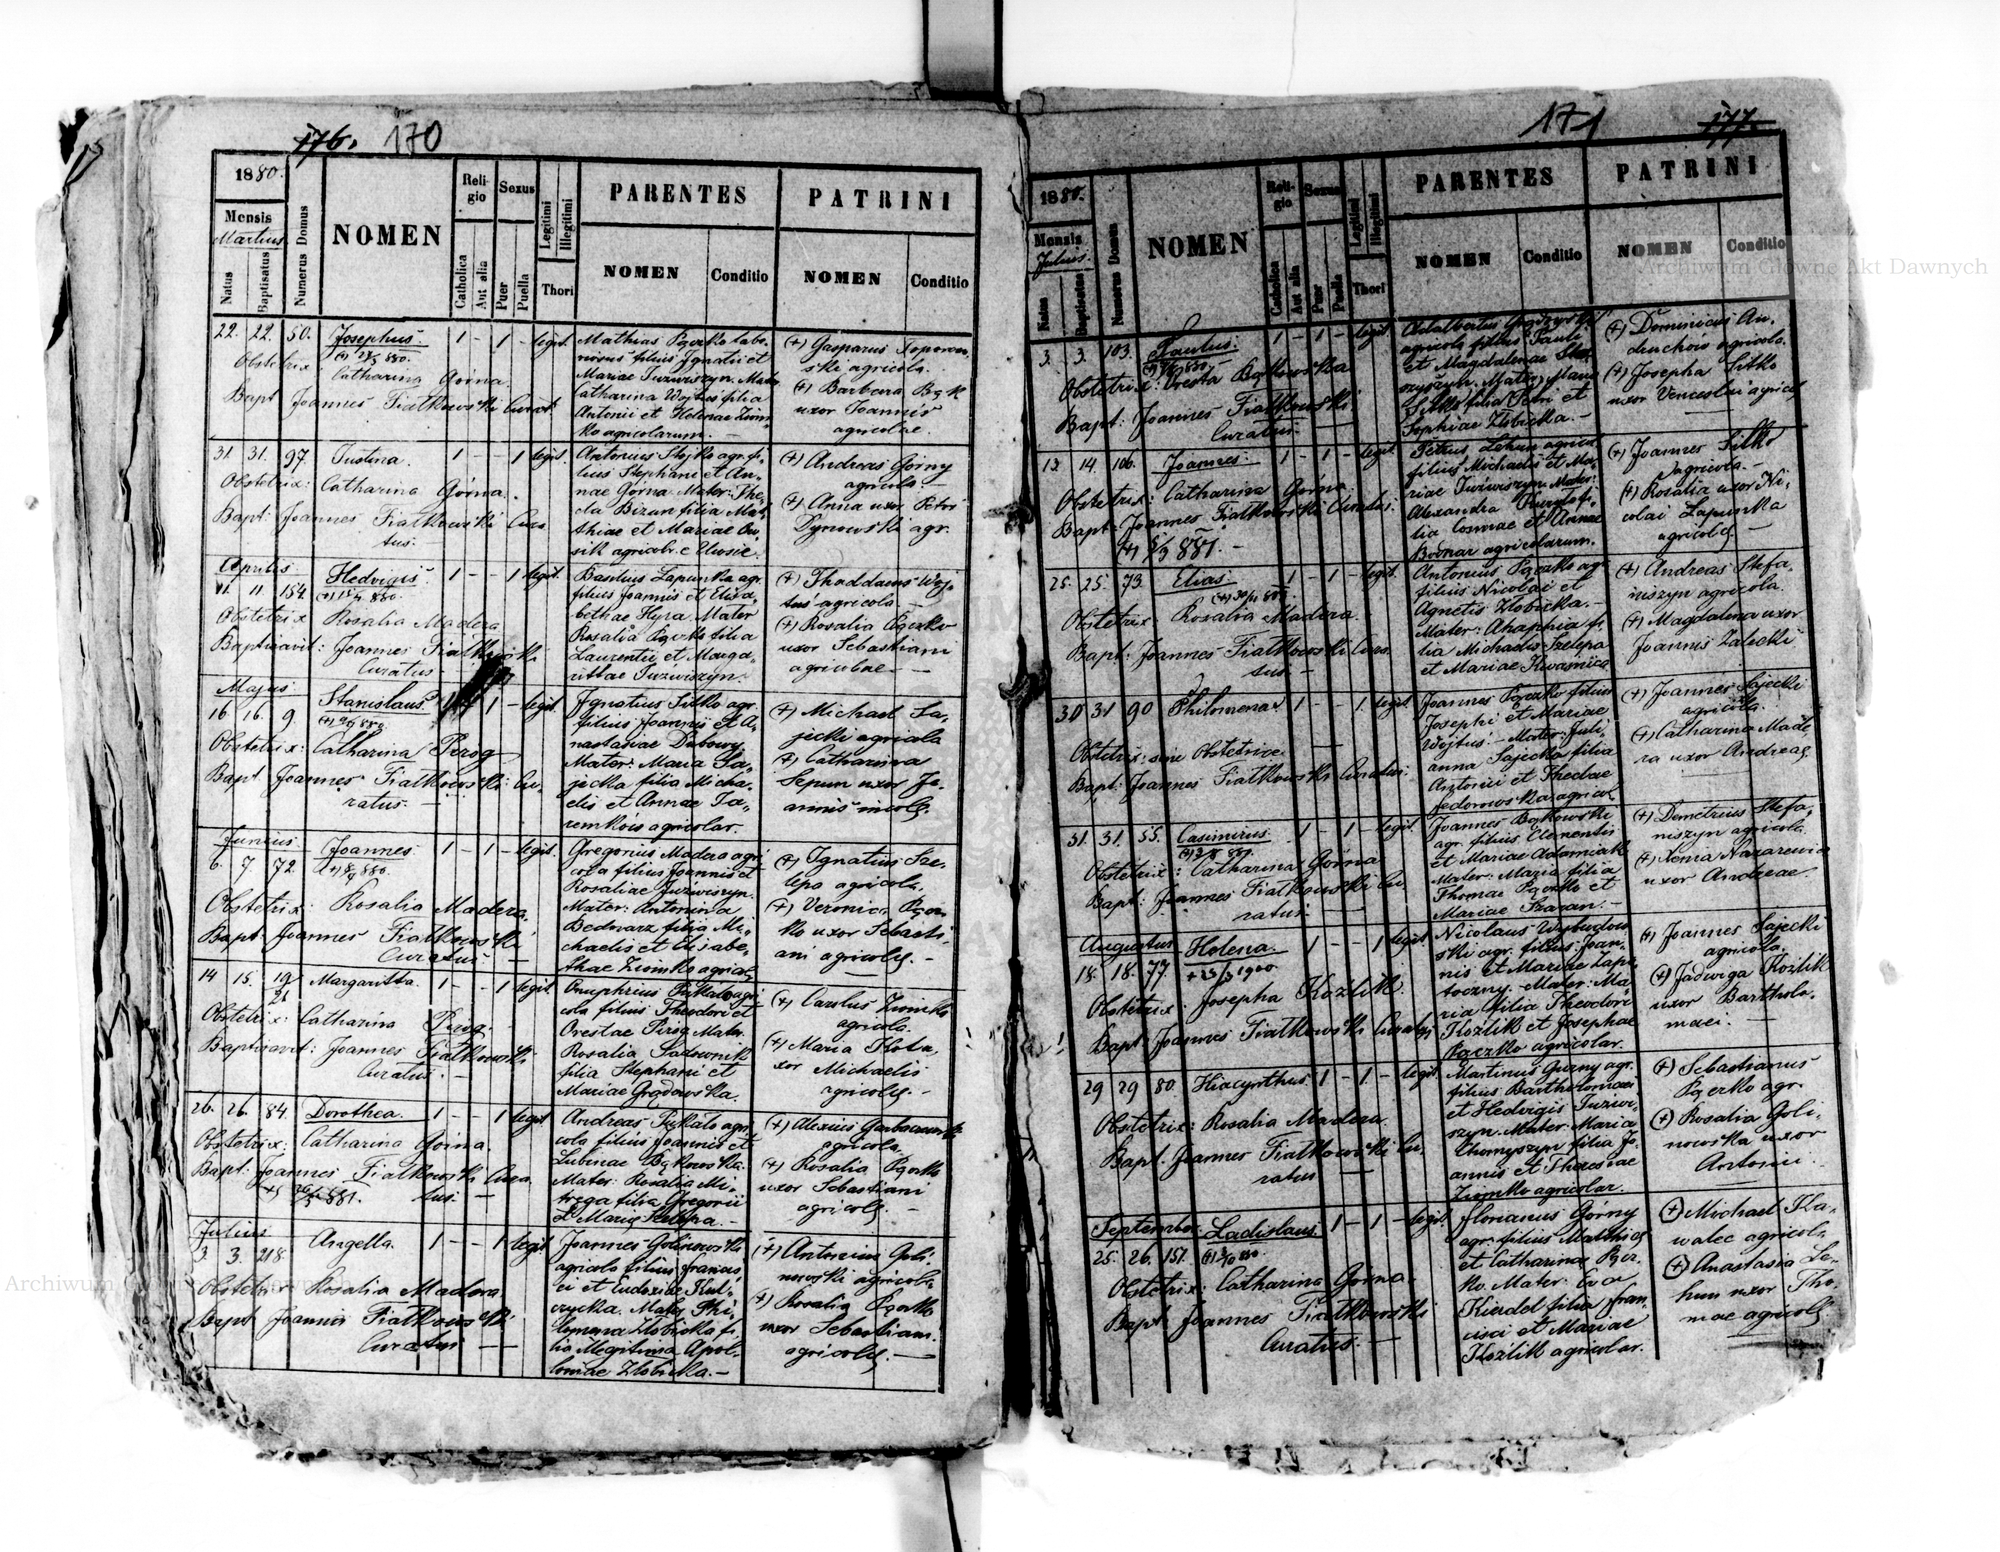 176. 170
1880.
Mensis
Martius
Natus
Baptisatus
Numerus Domus
NOMEN
Religio
Catholica
Aut alia
Sexus
Puer
Puella
Legitimi
Illegitimi
Thori
PARENTES
NOMEN
Conditio
PATRINI
NOMEN
Conditio
22. 22. 50. Josephus. 1 - 1 - legit.
Obstetrix Catharina Górna.
Bapt Joannes Fiatkowski Curat.
filius Ignatii et
Catharina Wojtus filia
Antonii et Helenae
agricolarum. -
(+) Gasparus
ski agricola.
(+) Barbara Bąk
uxor Joannis
agricolae.
31. 31. 97. Justina. 1 - - 1 legit.
Obstetrix: Catharina Górna.
Bapt: Joannes Fiatkowski Cura
tus.
Antonius Stojko agr. fi„
lius Stephani et An„
nae Górna. Mater: The„
cla Bizun filia Mat„
thiae et Mariae
(+) Andreas Górny
agricola -
(+) Anna uxor Petri
Dynowski agr.
Aprilis
11. 11. 154. Hedvigis. 1 - - 1 legit.
Obstetrix Rosalia Madera
Baptisavit: Joannes Fiatkowski
Curatus -
Basilius Lapunka agr.
filius Joannis et Elisa„
bethae Hyra. Mater
Rosalia Pączko filia
Laurentii et Marga„
rittae Juzwiszyn.
(+) Thaddaeus Woj„
tus agricola
(+) Rosalia Pączko
uxor Sebastiani
agricolae -
Majus
16. 16. 9. Stanislaus. 1 - legit.
Obstetrix: Catharina Pirog
Bapt Joannes Fiatkowski Cu„
ratus. -
Ignatius Sitko agr.
filius Joannis et A„
nastasiae Dubowy
Mater: Maria Sa„
jecka filia Micha„
elis et Annae Ja„
remków agricolar.
(+) Michael Sa„
jecki agricola
(+) Catharina
Sepun uxor Jo„
annis
Junius
6. 7. 72. Joannes 1 - 1 - legit.
Obstetrix: Rosalia Madera.
Bapt Joannes Fiatkowski
Curatus -
Gregorius Madera agri
cola filius Joannis et
Rosaliae Juzwiszyn.
Mater: Antonina
Bednarz filia Mi„
chaelis et Elisabe„
thae Ziomko agricol.
(+) Ignatius Sze„
lepa agricola.
(+) Veronica Pącz„
ko uxor Sebasti„
ani agricolę. -
14 15. 19/21 Margaritta. 1 - - 1 legit.
Obstetrix: Catharina Pirog.
Baptisavit: Joannes Fiatkowski
Curatus. -
Onuphrius Pykalo agri
cola filius Theodori et
Orestae Pirog. Mater
Rosalia Sadownik
filia Stephani et
Mariae Gradowska.
(+) Carolus Ziomko
agricola.
(+) Maria
xor Michaelis
agricolę. -
26. 26. 84. Dorothea. 1 - - 1 legit
Obstetrix: Catharina Górna.
Bapt: Joannes Fiatkowski Cura
tus. -
Andreas Pykalo agri
cola filius Joannis et
Lubinae Bąkowska.
Mater: Rosalia Mi„
trega filia Gregorii
(+) Alexius
agricola.
(+) Rosalia Pączko
uxor Sebastiani
agricolę -
Julius
3. 3. 218. Angella. 1 - - 1 legit
Obstetrix Rosalia Madera
Bapt Joannes Fiatkowski
Curatus -
Joannes Golinowski
agricola filius Francis„
ci et Eudoxiae Kul„
czycka. Mater Phi„
lomena Zlobicka fi„
lia illegitima Apol„
loniae Zlobicka. -
(+) Antonius Goli„
nowski agricola
(+) Rosalia Pączko
uxor Sebastiani
agricolę. -
171 177.
1880.
Mensis
Julius.
Natus
Baptisatus
Numerus Domus
NOMEN
Religio
Catholica
Aut alia
Sexus
Puer
Puella
Legitimi
Illegitimi
Thori
PARENTES
NOMEN
Conditio
PATRINI
NOMEN
Conditio
3. 3. 103. Paulus. 1 - 1 - legit.
Obstetrix: Oresta Bąkowska
Bapt: Joannes Fiatkowski
Curatus. -
Adalbertus
agricola filius Pauli
et Magdalenae
Sitko filia Petri et
Sophiae Zlobicka. -
(+) Dominicus An„
druchow agricola.
(+) Josepha Sitko
uxor Venceslai agricol
12. 14. 106. Joannes. 1 - 1 - legit.
Obstetrix: Catharina Górna.
Bapt: Joannes Fiatkowski Curatus.
881. -
Petrus Lehun agricol
filius Michaelis et Ma„
riae Juzwiszyn. Mater:
Alexandra
lia Cosmae et Annae
Bodnar agricolarum.
(+) Joannes Sitko
agricola. -
(+) Rosalia uxor Ni„
colai Lapunka
agricolę. -
25. 25. 73. Elias. 1 - 1 - legit.
Obstetrix Rosalia Madera.
Bapt: Joannes Fiatkowski Cura
tus. -
Antonius Pączko agr.
filius Nicolai et
Agnetis Zlobicka. -
Mater: Ahaphia fi„
lia Michaelis Szelepa
et Mariae
(+) Andreas Stefa„
niszyn agricola.
(+) Magdalena uxor
Joannis
30 31 90 Philomena. 1 - - 1. legit.
Obstetrix: sine Obstetrice.
Bapt: Joannes Fiatkowski Curatus.
Joannes Pączko filius
Josephi et Mariae
Wojtus. - Mater: Juli„
anna Sajecka filia
Antonii et Theclae
Fedorowska agricol.
(+) Joannes Sajecki
agricola.
(+) Catharina Made
ra uxor Andreaę.
31. 31. 55. Casimirus. 1 - 1 - legit.
Obstetrix: Catharina Górna
Bapt: Joannes Fiatkowski Cu„
ratus. -
Joannes Bąkowski
agr. filius Clementis
et Mariae Adamiak
Mater: Maria filia
Thomae Pączko et
Mariae Szaran. -
(+) Demetrius Stefa„
niszyn agricola.
(+) Xenia Nazarewicz
uxor Andreae.
Augustus
18. 18. 77. Helena. 1 - - 1 legit.
+23/3 1900
Obstetrix: Josepha Kozlik.
Bapt: Joannes Fiatkowski Curatus
Nicolaus Wybudow„
ski agr. filius Joan„
nis et Mariae Zapo„
toczny. - Mater: Ma„
ria filia Theodori
Kozlik et Josephae
Pączko agricolar.
(+) Joannes Sajecki
agricola.
(+) Jadwiga Kozlik
uxor Bartholo„
maei. -
29 29 80. Hiacynthus. 1 - 1. - legit.
Obstetrix: Rosalia Madera.
Bapt. Joannes Fiatkowski Cu„
ratus -
Martinus Gurny agr.
filius Bartholomaei
et Hedvigis Juzwi„
szyn. Mater: Maria
Chomyszyn filia Jo„
annis et Theresiae
Ziomko agricolar.
(+) Sebastianus
Pączko agr.
(+) Rosalia Goli„
nowska uxor
Antonii.
September.
25. 26. 151. Ladislaus. 1 - 1 - legit.
Obstetrix: Catharina Górna.
Bapt: Joannes Fiatkowski
Curatus. -
Florianus Górny
agr. filius Matthiae
et Catharinae Pącz„
ko. Mater: Eva
Kindel filia Fran„
cisci et Mariae
Kozlik agricolar.
(+) Michael Sla„
walec agricola
(+) Anastasia Le„
hun uxor Tho„
mae agricolę
Archiwum Główne Akt Dawnych
Archiwum Główne Akt Dawnych